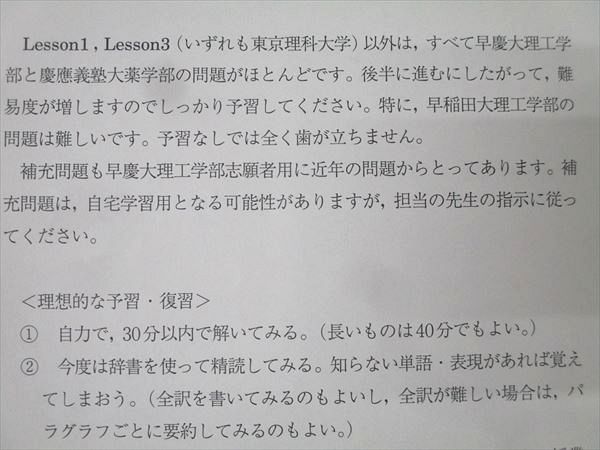 Lesson1，Lesson3（いずれも東京理科大学）以外は，すべて早慶大理工学
部と慶應義塾大薬学部の問題がほとんどです。後半に進むにしたがって，難
易度が増しますのでしっかり予習してください。特に，早稲田大理工学部の
問題は難しいです。予習なしでは全く歯が立ちません。
補充問題も早慶大理工学部志願者用に近年の問題からとってあります。補
充問題は，自宅学習用となる可能性がありますが，担当の先生の指示に従っ
てください。
＜理想的な予習・復習＞
① 自力で，30分以内で解いてみる。（長いものは40分でもよい。）
② 今度は辞書を使って精読してみる。知らない単語・表現があれば覚え
てしまおう。（全訳を書いてみるのもよいし，全訳が難しい場合は，パ
ラグラフごとに要約してみるのもよい。）